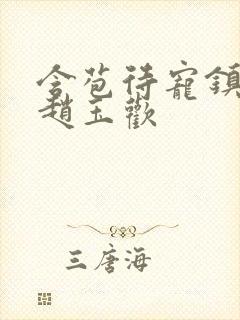 含苞待寵鎮
趙玉歡
三唐海